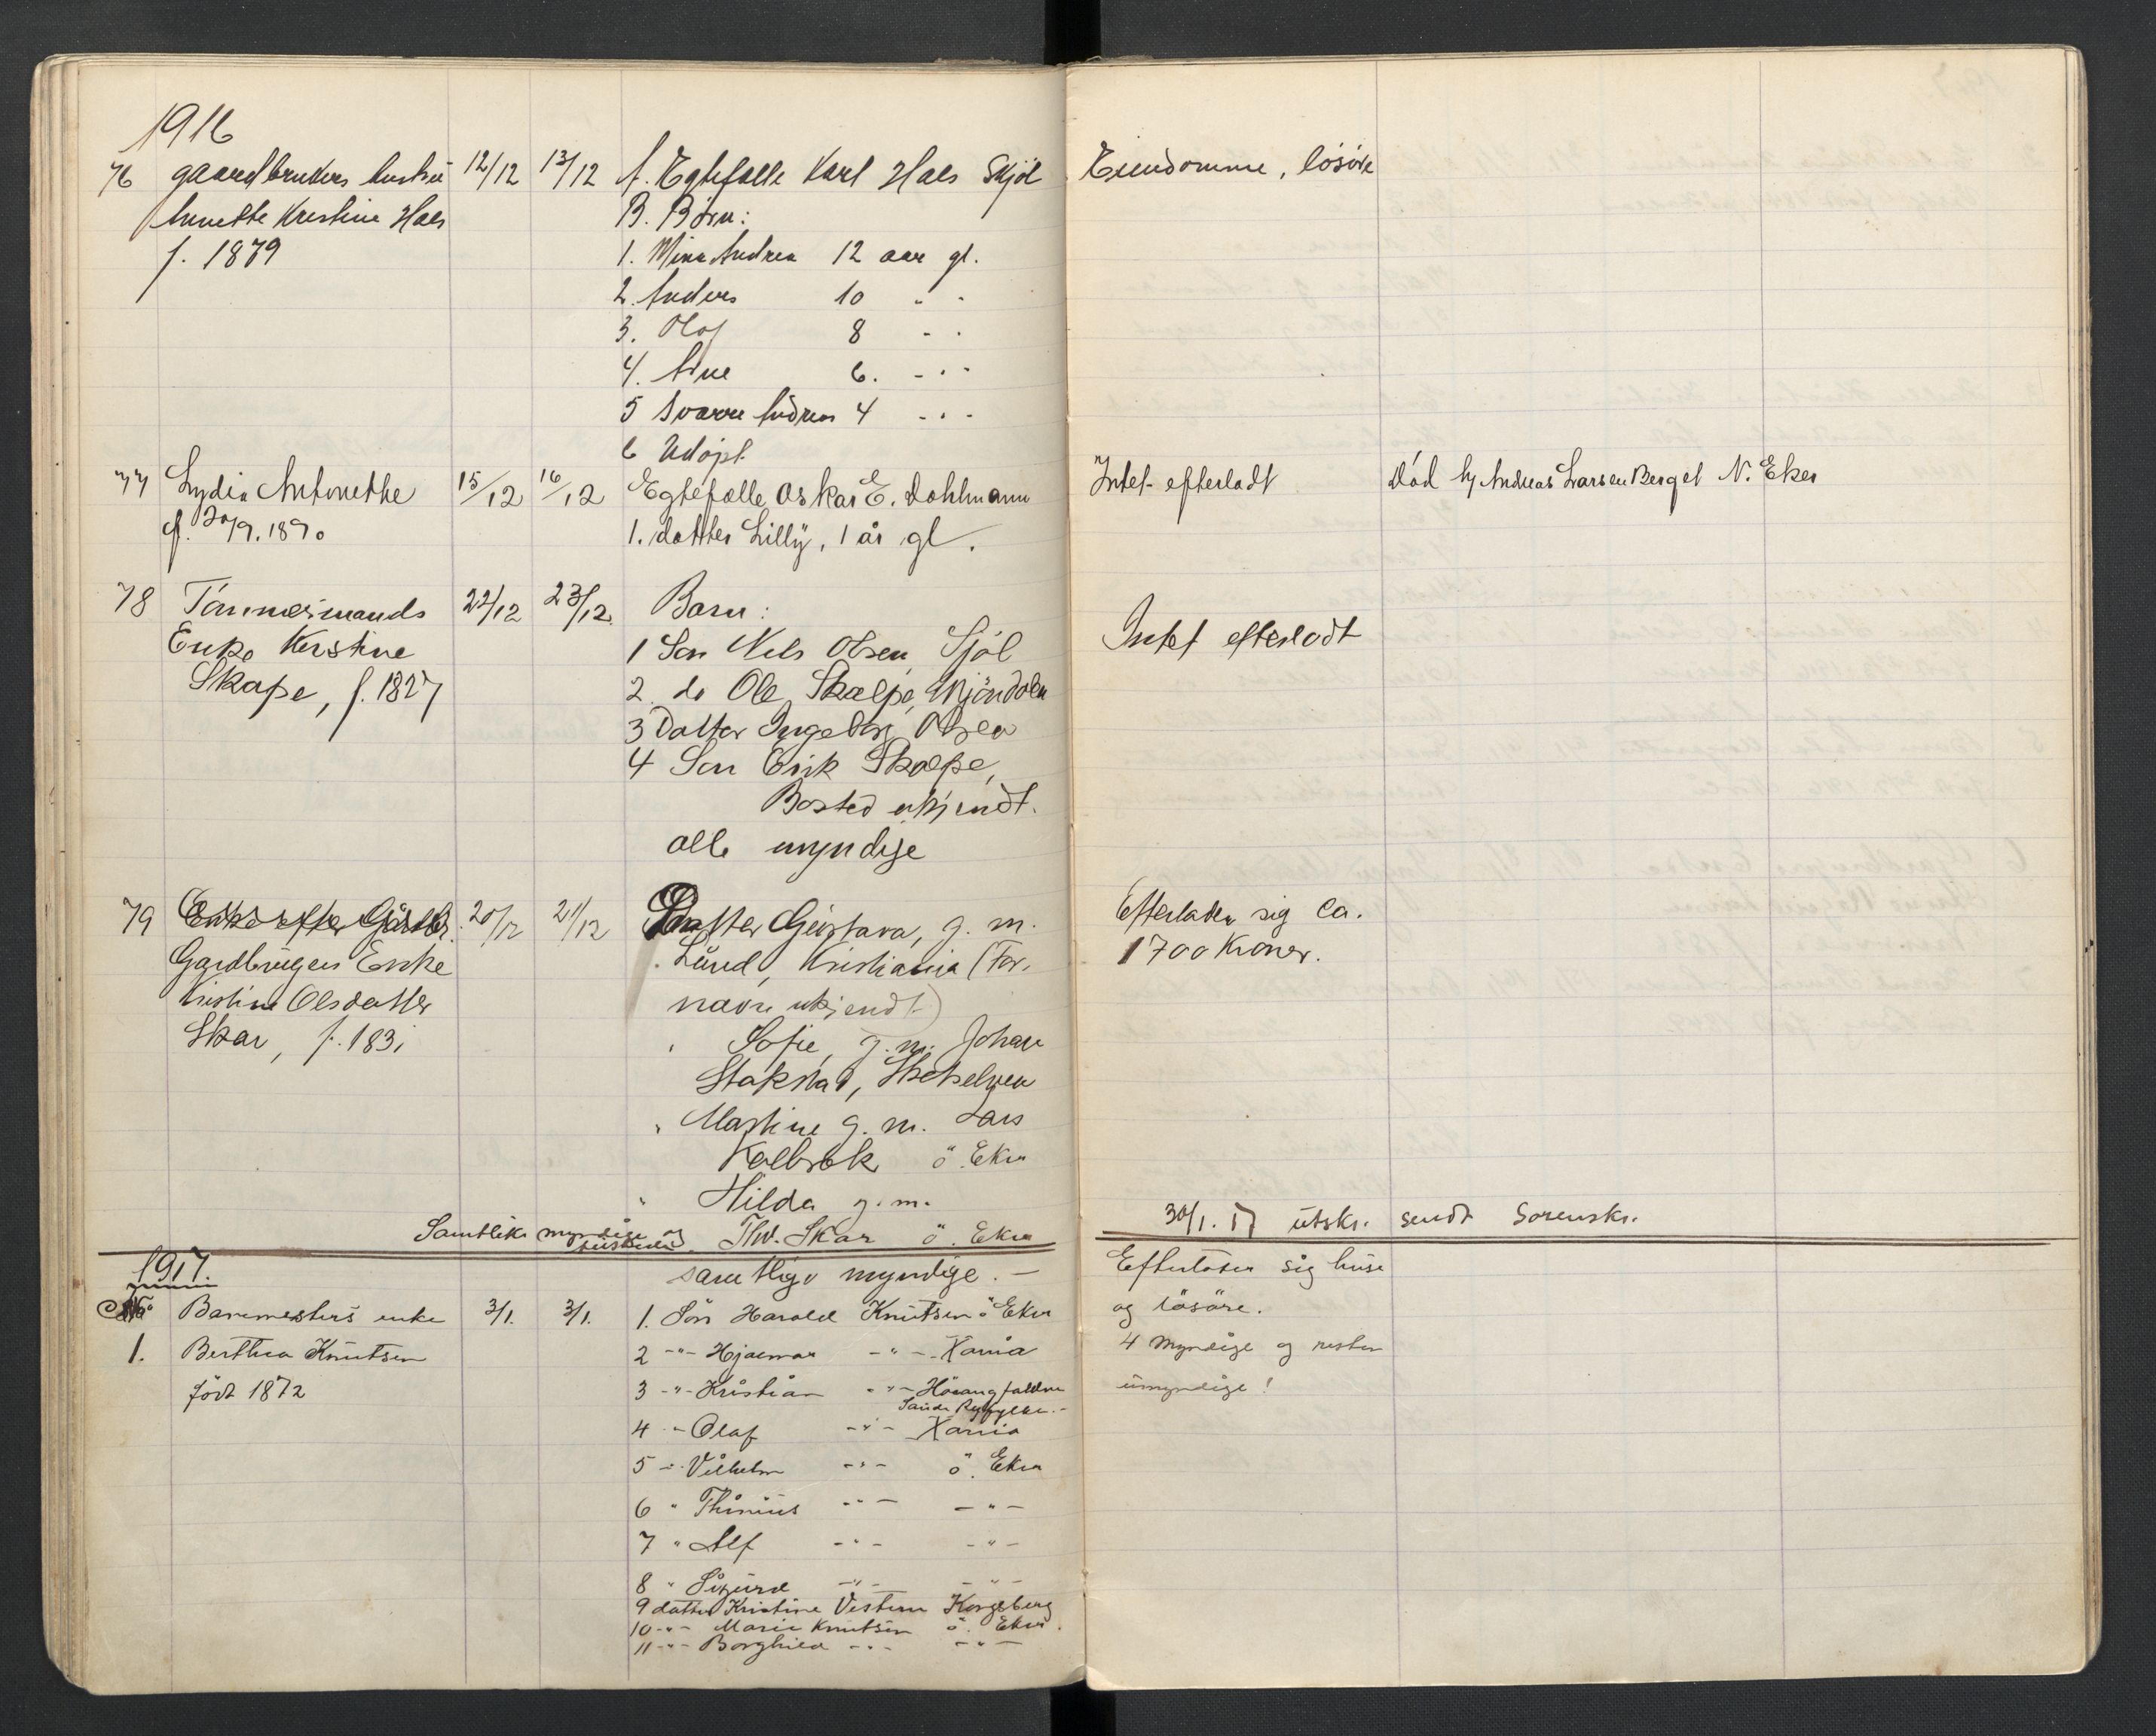 1916
76 gaardbrukers hustru 12/12 13/12 A. Egtefælle Karl Hals Skjöl Eiendomme, lösöre
Annette Kristine Hals B. Börn:
f. 1879 1. Mina Andrea 12 aar gl.
2. Anders 10 " "
3. Olaf 8 " "
4. Arne 6. - " "
5 Sverre Andreas 4 - " -
6 Udöpt
77 Lydia Antonethe 15/12 16/12 Egtefælle Oskar E. Dahlmann Intet efterladt Död hj Andreas Larsen Berget N. Eker
f. 20/9. 1890 1. datter Lilly, 1 år gl.
78 Tömmermands 22/12 23/12. Barn:
Enke Kirstine 1 Sön Nels Olsen, Sjöl Intet efterladt
Skalpe, f. 1827 2. do Ole Skalpe, Mjöndalen
3 Datter Ingeborg Olsen
4 Sön Erik Skalpe,
Bosted ukjendt.
alle myndige
79 Enke efter Gårdbr. 20/12 21/12 Datter Gustava, g. m. Efterlader sig ca.
Gardbrugers Enke " Lund, Kristiania (For- 1700 Kroner.
Kristine Olsdatter navn ukjendt)
Skar, f. 1831 " Sofie, g. m. Johan
Stakstad, Skotselven
" Martine g. m. Lars
Kolbræk ö. Eker
" Hilda g. m. 30/1. 17 utskr. sendt Sorenskr.
Samtlike myndige og Thv. Skar ö. Eker
1917. samtlige myndige. - Efterlater sig huse
No Banemesters enke 3/1. 3/1. 1. Sön Harald Knutsen ö Eker og lösöre.
1. Berthea Knutsen 2 -"- Hjalmar -"- Xania 4 myndige og resten
född 1872 3 -"- Kristian -"- Höiangfalden umyndige!
Saude Ryfylke. -
4 -"- Olaf -"- Xania
5 -"- Vilhelm -"- ö. Eker
6 " Thinius -"- -"-
7 " Alf -"- -"-
8 " Sigurd -"- -"-
9 datter Kristine Vestern Kongsberg
10 -"- Marie Knutsen ö. Eker.
11 -"- Borghild -"- -"-